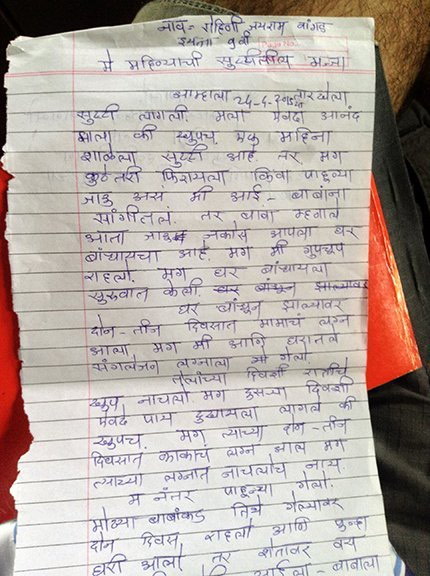 नाव = रोहिणी जयराम वांगड
इयत्ता ७वी
मे महिन्याची सुट्टीतील मज्जा
आम्हाला 24-4-2015 तारखेला
सुट्टी लागली. मला एवढा आनंद
झाला की खुपच एक महिना
शाळेला सुट्टी आहे. तर मग
कुठेतरी फिरायला किंवा पाहूण्या
जाऊ असं मी आई - बाबांना
सांगीतलं. तर बाबा म्हणाले
आता जाऊ नकोस आपला घर
बांधायचा आहे. मग मी गुपचूप
राहले. मग घर बांधायला
सुरुवात केली. घर बांधून झाल्यावर
घर बांधून झाल्यावर
दोन - तीन दिवसात मामाचं लग्न
आला मग मी आणि घरातले
सगळेजन लग्नाला गेलो.
दिवशी रातीचे
खुप नाचलो मग दुसऱ्या दिवशी
एवढे पाय दुखायला लागले की
खुपच. मग त्याच्या दोन - तीन
दिवसात काकाचं लग्न आलं मग
त्याच्या लग्नात नाचलोच नाय.
म नंतर पाहूण्या गेलो.
मोठ्या बाबांकडं तिथे गेल्यावर
दोन दिवस राहलो आणि पुन्हा
घरी आलो तर शेतावर